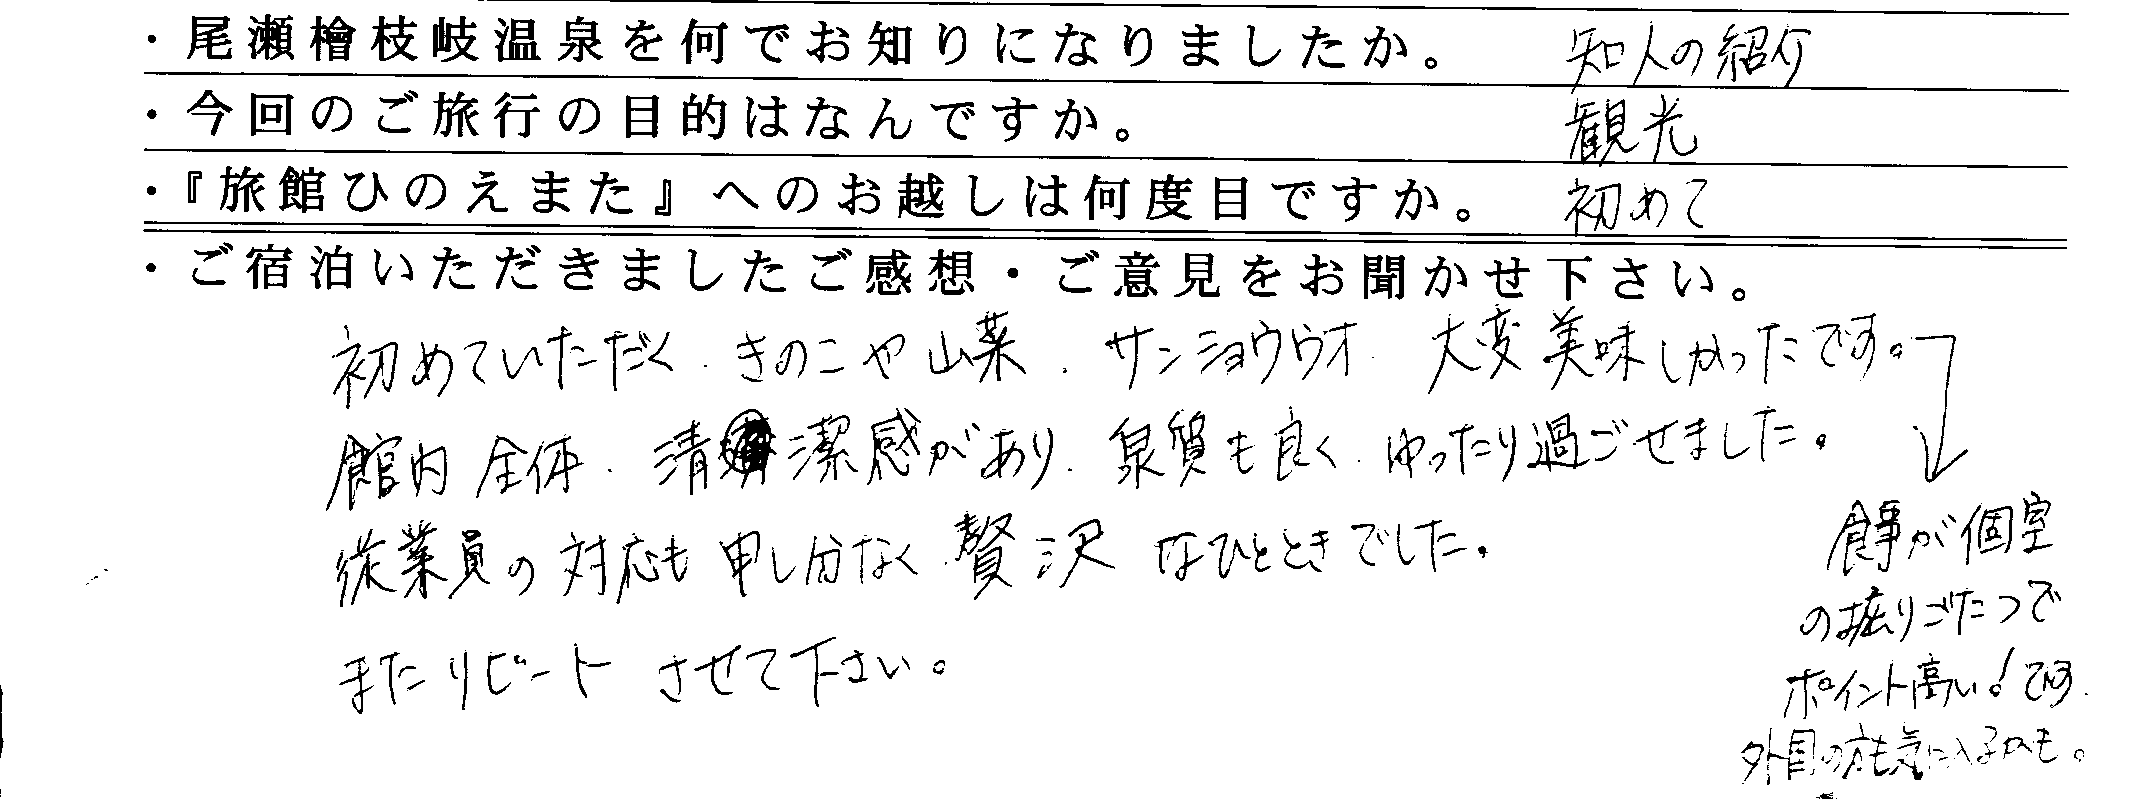 ・尾瀬檜枝岐温泉を何でお知りになりましたか。 知人の紹介
・今回のご旅行の目的はなんですか。 観光
・『旅館ひのえまた』へのお越しは何度目ですか。 初めて
・ご宿泊いただきましたご感想・ご意見をお聞かせ下さい。
初めていただく、きのこや山菜、サンショウウオ、大変美味しかったです。
館内全体、清潔感があり、泉質も良く、ゆったり過ごせました。
従業員の対応も申し分なく、贅沢なひとときでした。
またリピートさせて下さい。
食事が個室
の掘りごたつで
ポイント高い!です。
外国の方も気に入るかも。